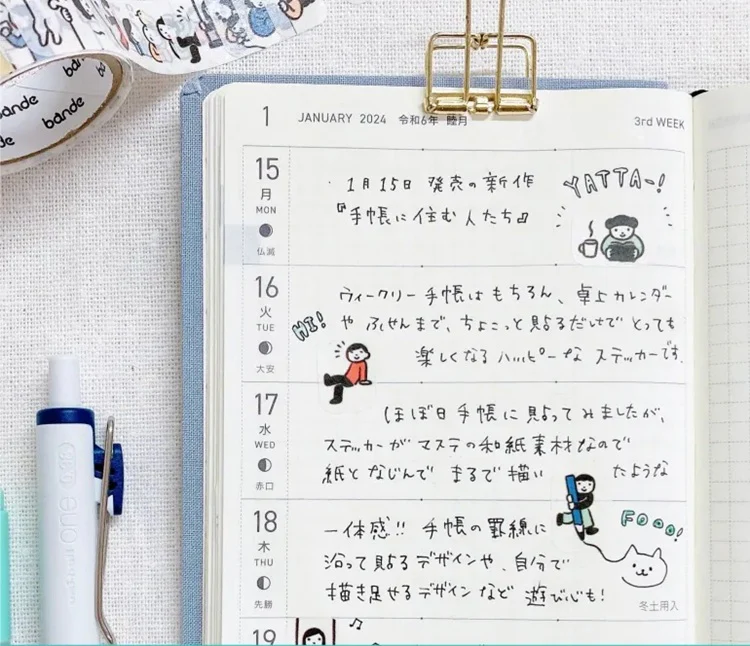 bande
bande
bande
1 JANUARY 2024 令和6年 睦月 3rd WEEK
15
月
MON
仏滅
・1月15日 発売の新作
『手帳に住む人たち』
YATTA-!
16
火
TUE
大安
ウィークリー手帳はもちろん、卓上カレンダー
や ふせんまで、ちょこっと貼るだけで とっても
楽しくなる ハッピーな ステッカーです。
HI!
17
水
WED
赤口
ほぼ日手帳に貼ってみましたが、
ステッカーが マステの和紙素材なので
紙と なじんで まるで描い たような
18
木
THU
先勝
一体感!! 手帳の罫線に
沿って貼るデザインや、自分で
描き足せるデザインなど 遊び心も!
FOOO!
冬土用入
19
one